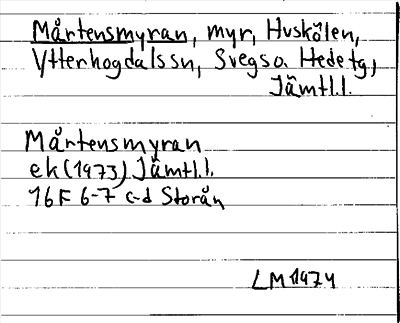 Mårtensmyran, myr, Huskölen,
Ytterhogdalssn, Svegs o. Hede tg,
Jämtl.l.
Mårtensmyran
ek (1973) Jämtl.l.
16F 6-7 c-d Storån
LM 1974